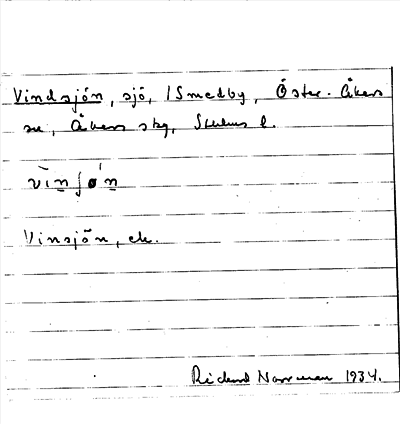 Vindsjön, sjö, i Smedby, Öster-Åkers
sn, Åkers skg, Sthlms l.
vi̅nʃø´n
Vinsjön, ek.
Rickard Norrman 1934.